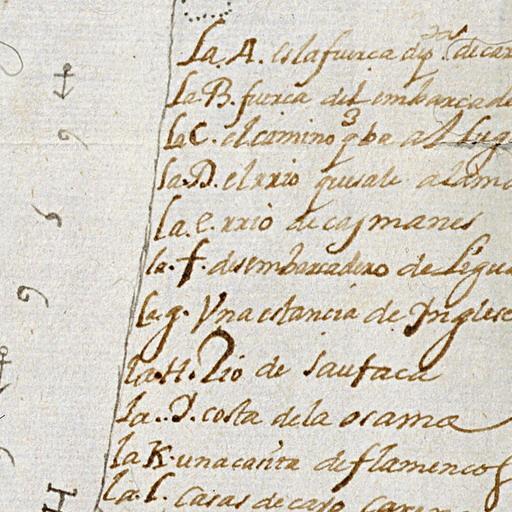 la. A. es la fuerca dypª. de car
la B. fuerca del embarcade
la C. el camino q ba al lug
la. D. el rrio que sale a la ma
la. e. rrio de caymanes
la. f. desembarcadero de legua
la. g. Una estancia de Inglese
la. H. Rio de Jautaca
la. I. costa de la ocama
la K. una casita de flamencos
la. L. casas de caso
H